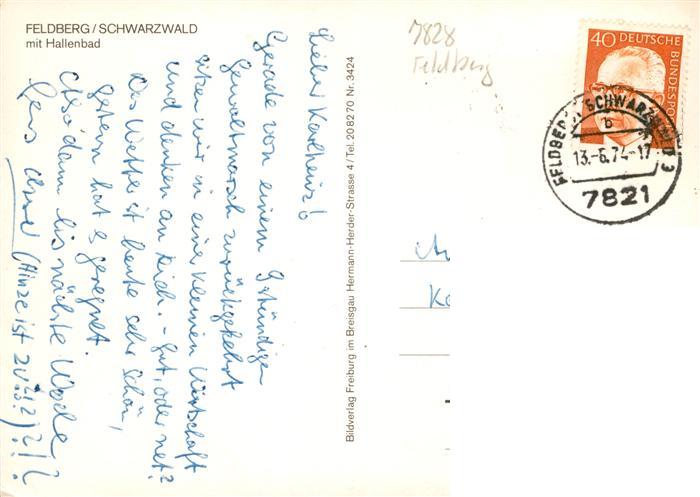 FELDBERG / SCHWARZWALD
mit Hallenbad
7828
Feldberg
40 DEUTSCHE BUNDESPOST
FELDBERG (SCHWARZWALD) 3
b
13.-6.74-17
7821
Lieber Karlheinz!
Gerade von einem stündigen
Gewaltmarsch zurückgekehrt
sitzen wir in einer kleinen Wirtschaft
und denken an Dich. - Gut, oder net?
Das Wetter ist heute sehr schön,
gestern hat es geregnet.
Also dann bis nächste Woche
(Hinze ist
Bildverlag Freiburg im Breisgau Hermann-Herder-Strasse 4/Tel. 208270 Nr. 3424